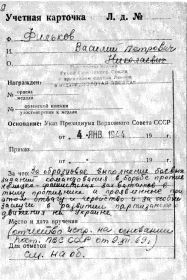 Учетная карточка Л. д. №
Ф. Фильков
И. Василий Петрович
О. Николаевич
Награжден:
№ ордена
и медали
№ орденской книжки
удостоверения к медали
Основание: Указ Президиума Верховного Совета
от 4 ЯНВ 1944 19 г.
Приказ
от 19 г.
За образцовое выполнение боевых
заданий командования в борьбе против
немецко-фашистских захватчиков в
тылу противника и проявленные при
этом отвагу и геройство и за особые
заслуги в развитии партизанского
движения на Украине
Место и дата вручения
(отчество испр. на основании
Пост. ПВС СССР от 69г.)
Для отметок
См. на об.